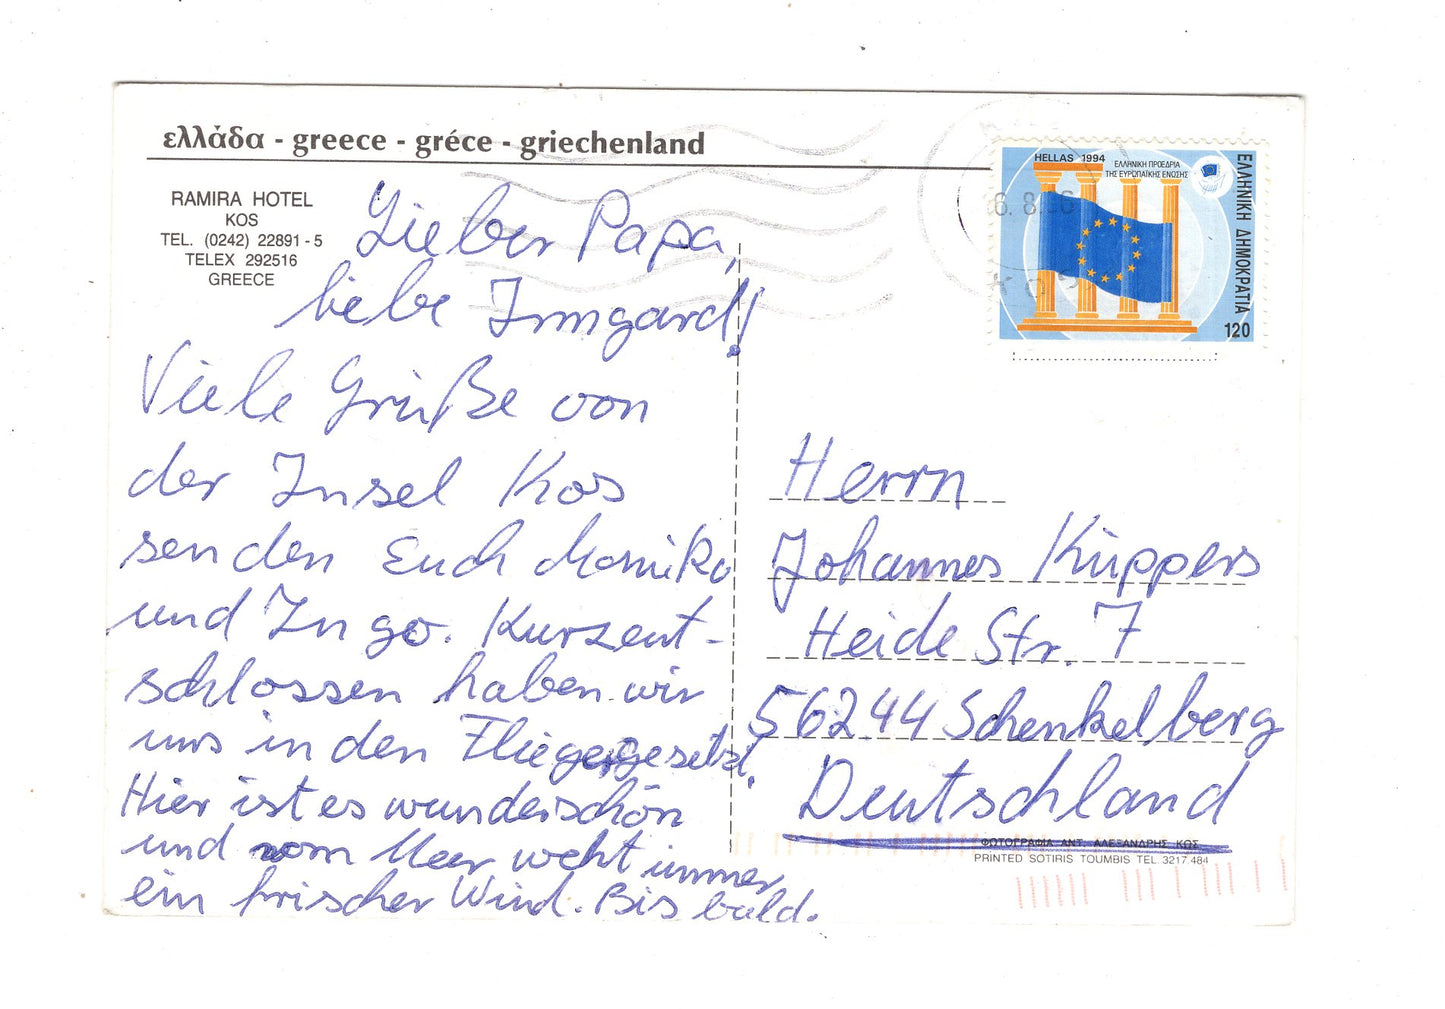 ελλάδα - greece - gréce - griechenland
RAMIRA HOTEL
KOS
TEL. (0242) 22891 - 5
TELEX 292516
GREECE
Lieber Papa,
liebe Irmgard!
Viele Grüße von
der Insel Kos
senden Euch Monika
und Ingo. Kurzent-
schlossen haben wir
uns in den Flieger gesetzt.
Hier ist es wunderschön
und vom Meer weht immer
ein frischer Wind. Bis bald.
HELLAS 1994
ΕΛΛΗΝΙΚΗ ΠΡΟΕΔΡΙΑ
ΤΗΣ ΕΥΡΩΠΑΪΚΗΣ ΕΝΩΣΗΣ
ΕΛΛΗΝΙΚΗ ΔΗΜΟΚΡΑΤΙΑ
120
6. 8.96
Herrn
Johannes Küppers
Heide Str. 7
56244 Schenkelberg
Deutschland
ΦΩΤΟΓΡΑΦΙΑ ΑΝΤ. ΑΛΕΞΑΝΔΡΗΣ ΚΩΣ
PRINTED SOTIRIS TOUMBIS TEL. 3217.484